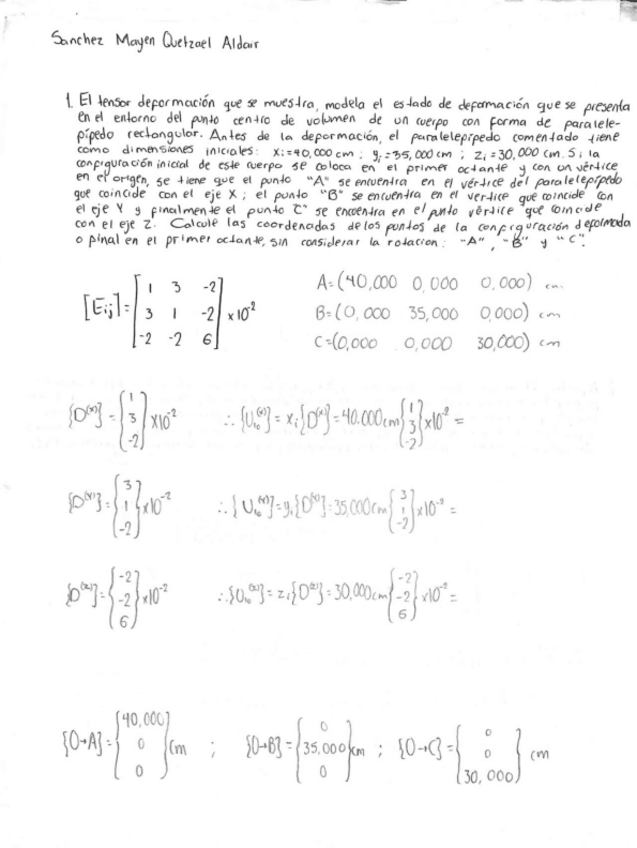 Sanchez Mayen Quetzael Aldair
1. El tensor deformación que se muestra, modela el estado de deformación que se presenta
en el entorno del punto centro de volumen de un cuerpo con forma de paralele-
pípedo rectangular. Antes de la deformación, el paralelepípedo comentado tiene
como dimensiones iniciales: xi=40,000 cm ; yi=35,000 cm ; zi=30,000 cm. Si la
configuración inicial de este cuerpo se coloca en el primer octante y con un vértice
en el origen, se tiene que el punto "A" se encuentra en el vértice del paralelepípedo
que coincide con el eje X; el punto "B" se encuentra en el vertice que coincide con
el eje Y y finalmente el punto "C" se encuentra en el punto vértice que coincide
con el eje Z. Calcule las coordenadas de los puntos de la configuración deformada
o final en el primer octante, sin considerar la rotacion: "A", "B" y "C".
[Eij]=[1 3 -2
3 1 -2
-2 -2 6] x10⁻²
A=(40,000 0,000 0,000) cm
B=(0,000 35,000 0,000) cm
C=(0,000 0,000 30,000) cm
{D⁽ˣ⁾}={1 3 -2}x10⁻² ∴ {U₁₀⁽ˣ⁾}=xi{D⁽ˣ⁾}=40.000cm{1 3 -2}x10⁻² =
{D⁽ʸ⁾}={3 1 -2}x10⁻² ∴ {U₁₀⁽ʸ⁾}=yi{D⁽ʸ⁾}=35,000cm{3 1 -2}x10⁻² =
{D⁽ᶻ⁾}={-2 -2 6}x10⁻² ∴ {U₁₀⁽ᶻ⁾}=zi{D⁽ᶻ⁾}=30,000cm{-2 -2 6}x10⁻² =
{O→A}={40,000 0 0}cm ; {O→B}={0 35,000 0}cm ; {O→C}={0 0 30,000} cm